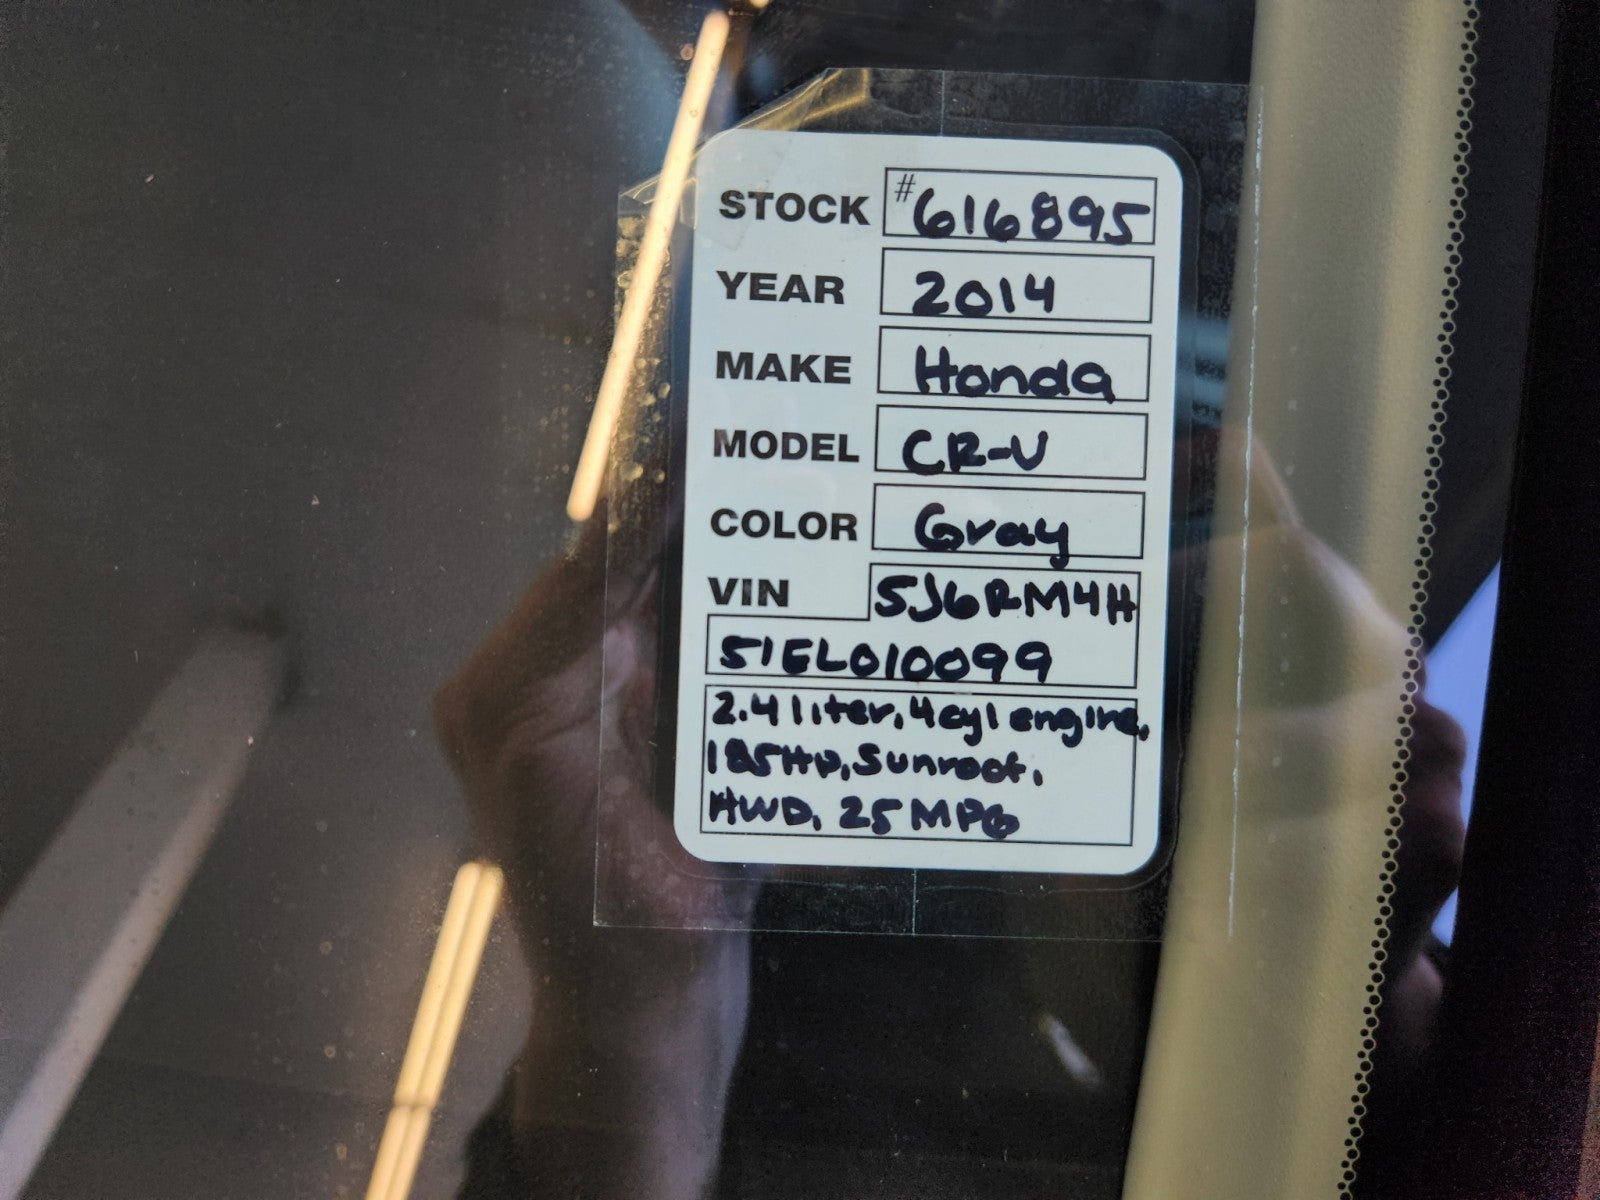 STOCK #616895
YEAR 2014
MAKE Honda
MODEL CR-V
COLOR Gray
VIN 5J6RM4H
51EL010099
2.4 liter, 4cyl engine,
185HP, Sunroof,
HWD, 25 MPG